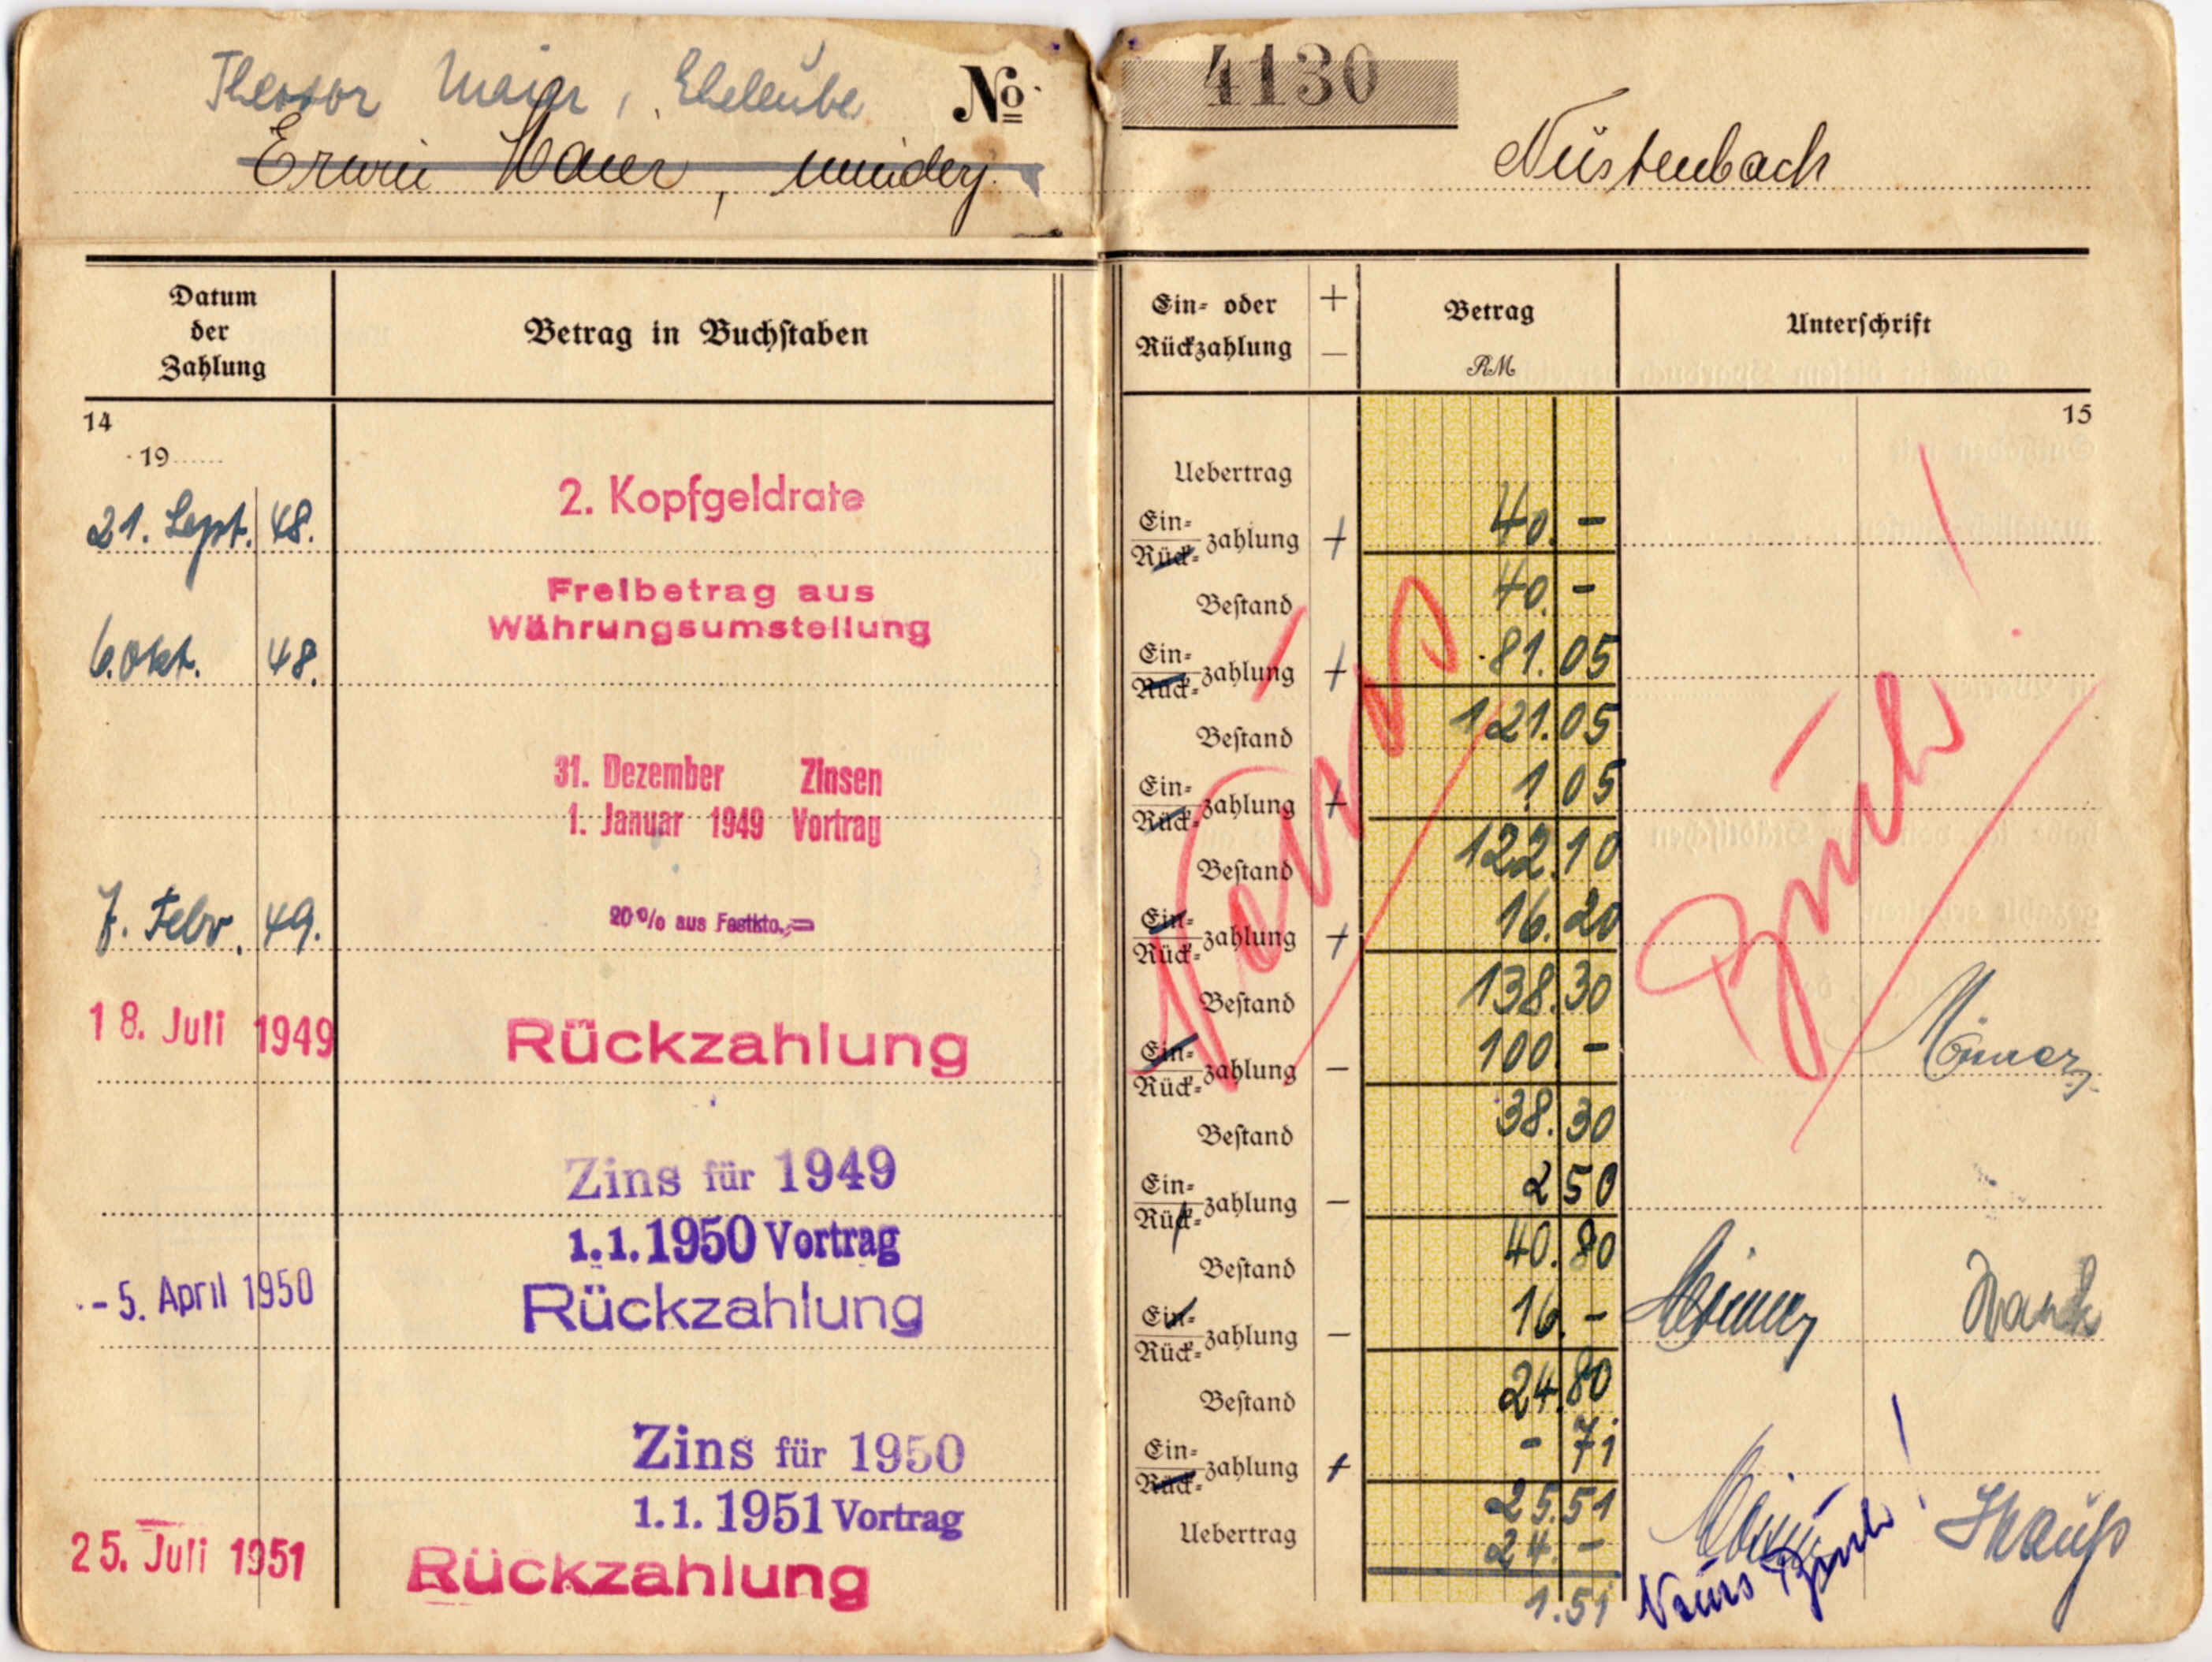 Theodor Maier, Eheleute
Erwin Maier, minderj.
No 4130
Nüstenbach
Datum der Zahlung
Betrag in Buchstaben
Ein- oder Rückzahlung + −
Betrag
RM
Unterschrift
14
15
19
Uebertrag
21. Sept. 48. 2. Kopfgeldrate Ein-/Rück-zahlung + 40.-
Freibetrag aus
Bestand 40.-
6. Okt. 48. Währungsumstellung Ein-/Rück-zahlung + 81.05
Bestand 121.05
31. Dezember Zinsen Ein-/Rück-zahlung + 1 05
1. Januar 1949 Vortrag
Bestand 122.10
7. Febr. 49. 20% aus Festkto. Ein-/Rück-zahlung + 16.20
Bestand 138.30
18. Juli 1949 Rückzahlung Ein-/Rück-zahlung − 100.-
Bestand 38.30
Zins für 1949 Ein-/Rück-zahlung − 2 50
1.1.1950 Vortrag
Bestand 40.80
- 5. April 1950 Rückzahlung Ein-/Rück-zahlung − 16.-
Bestand 24.80
Zins für 1950 Ein-/Rück-zahlung + - 71
1.1.1951 Vortrag 25.51
Uebertrag
25. Juli 1951 Rückzahlung 24.-
1.51
Neues
Buch!
Neues Buch!